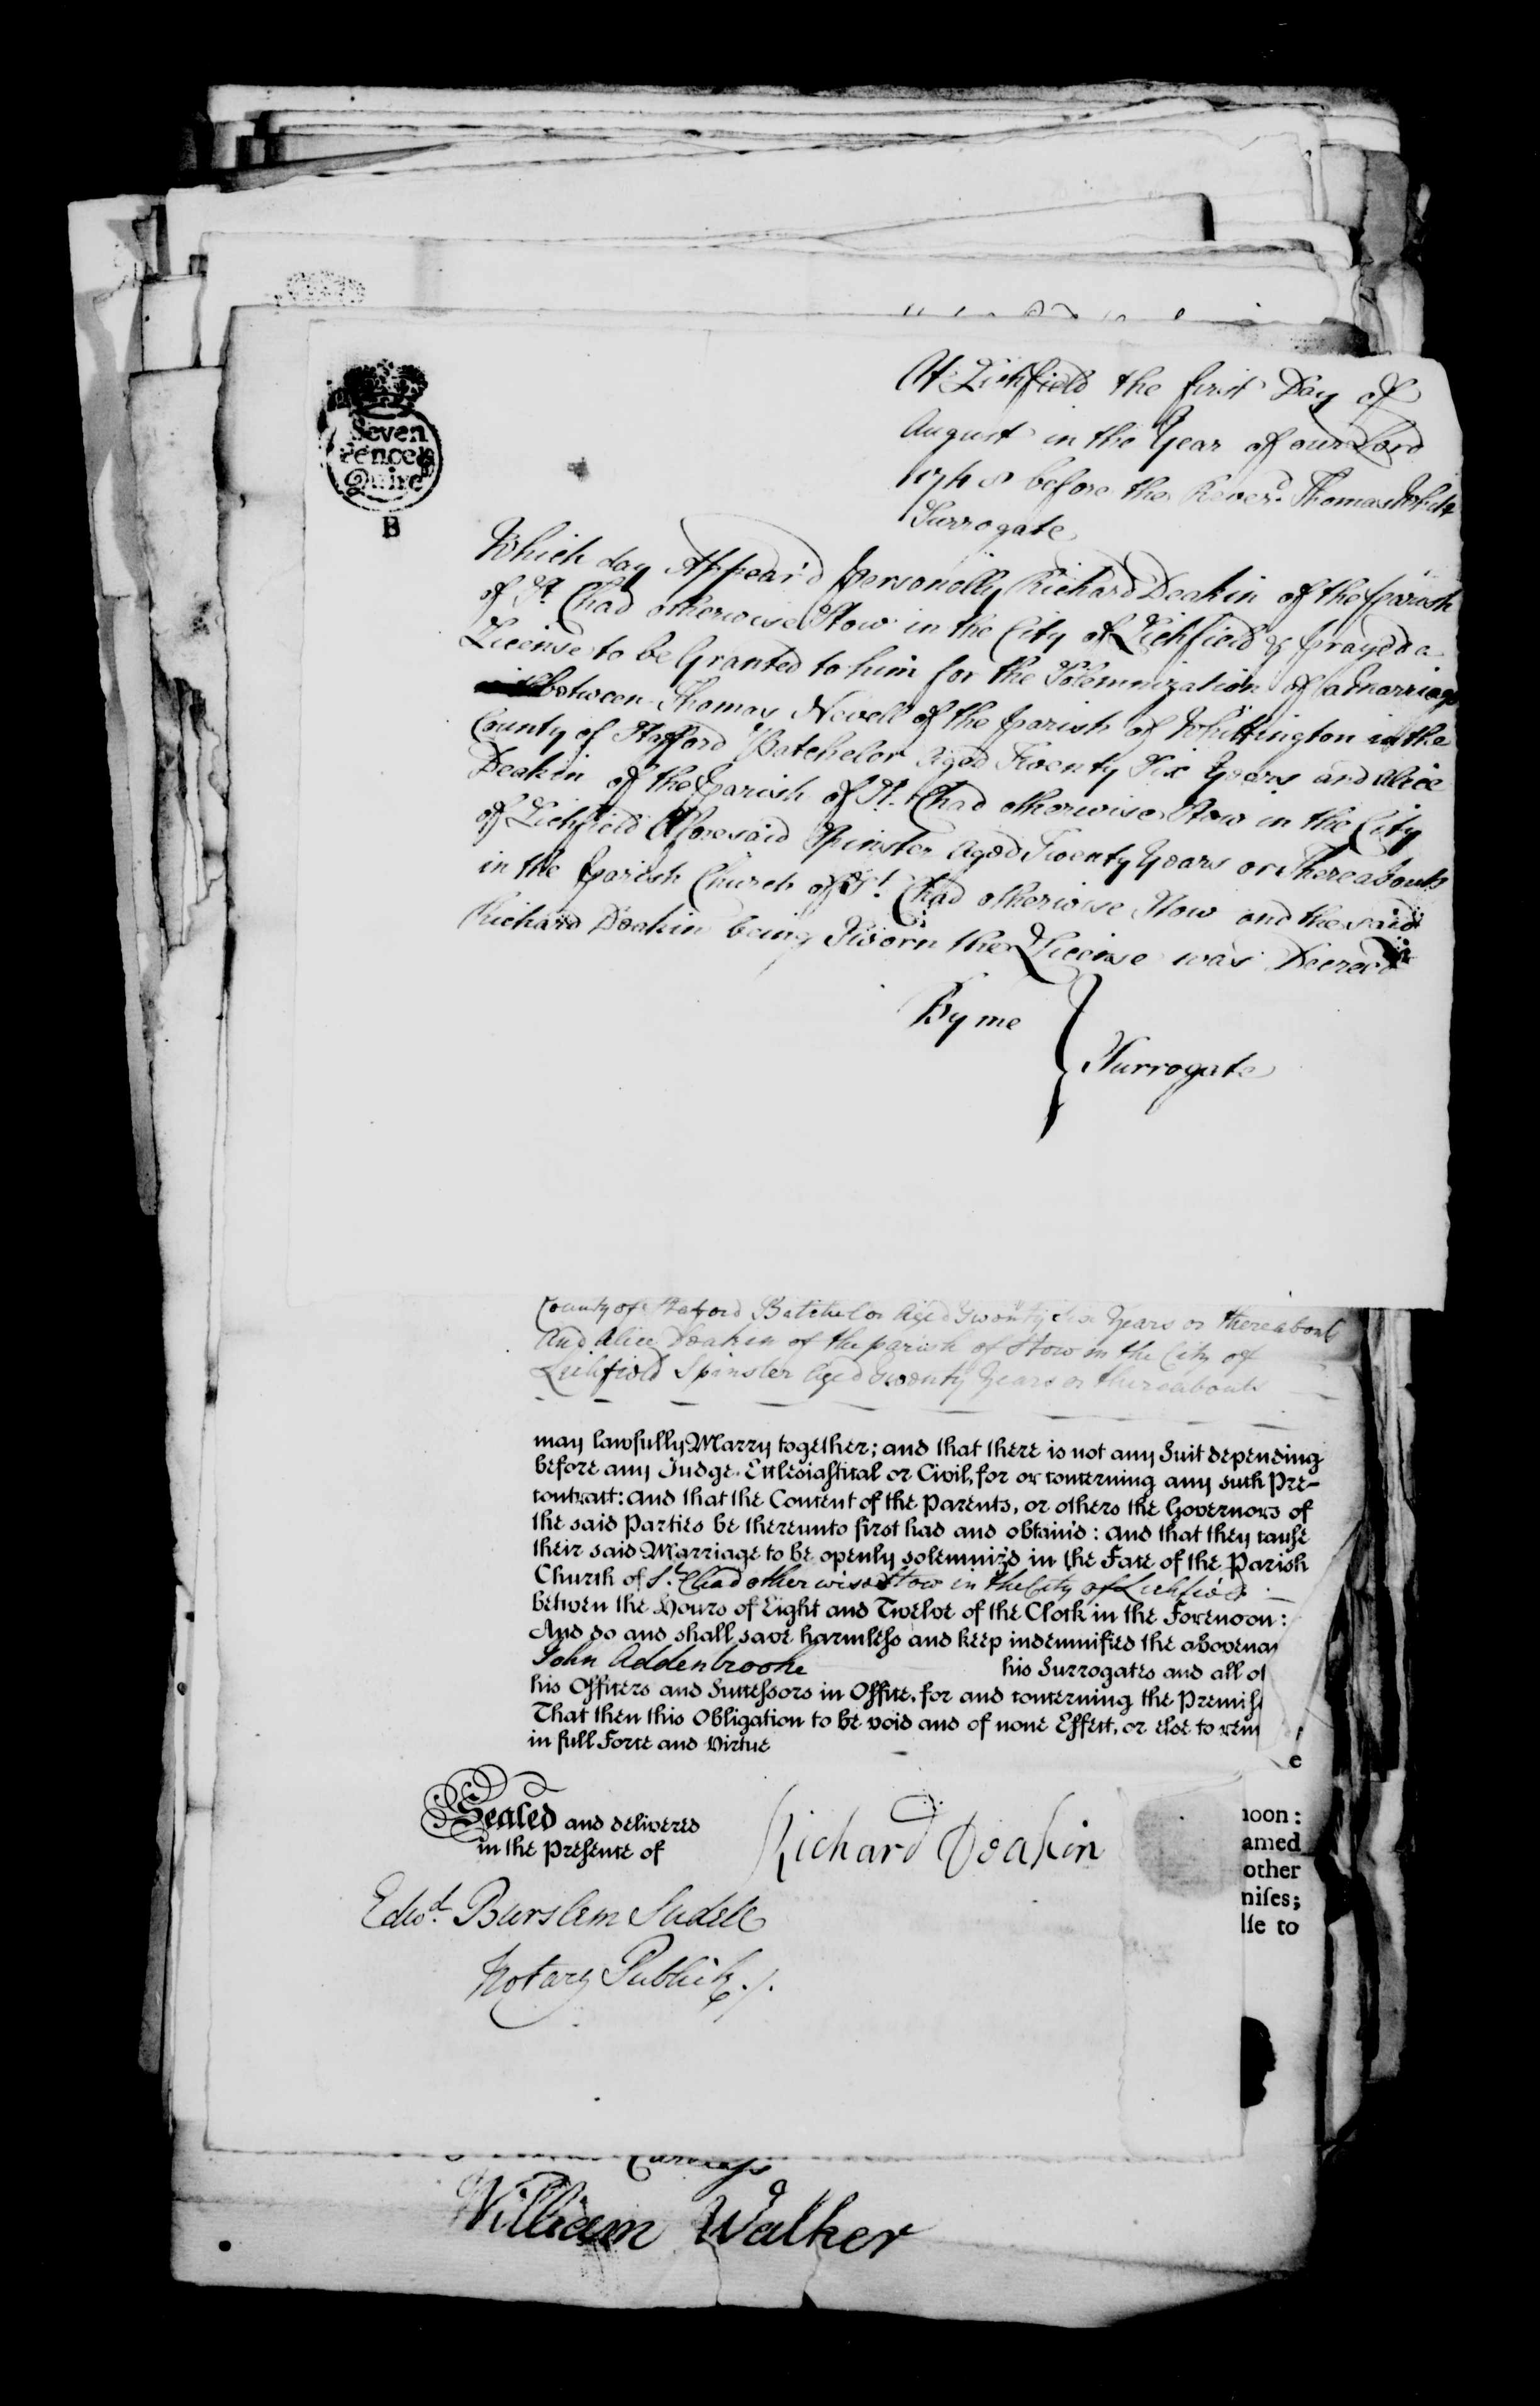 Seven
Pence
Quire
B
At Lichfield the first Day of
August in the Year of our Lord
1748 before the Reverd. Thomas White
Surrogate
Which day Appear'd personally Richard Deakin of the parish
of St. Chad otherwise Stow in the City of Lichfield & prayed a
License to be Granted to him for the Solemnization of a Marriage
between Thomas Nevell of the parish of Whittington in the
County of Stafford Batchelor Aged Twenty Six Years and Alice
Deakin of the parish of St. Chad otherwise Stow in the City
of Lichfield Aforesaid Spinster Aged Twenty Years or Thereabouts
in the parish Church of St. Chad otherwise Stow and the said
Richard Deakin being Sworn the License was Decreed
By me
Surrogate
County of Staford Batchelor Aged Twenty Six Years or thereabouts
And Alice Deakin of the parish of Stow in the City of
Lichfield Spinster Aged Twenty Years or thereabouts
may lawfully Marry together; and that there is not any Suit depending
before any Judge Ecclesiastical or Civil, for or concerning any such Pre-
contract: and that the Consent of the Parents, or others the Governors of
the said Parties be thereunto first had and obtain'd: and that they cause
their said Marriage to be openly solemniz'd in the Face of the Parish
Church of St. Chad otherwise Stow in the City of Lichfield
between the Hours of Eight and Twelve of the Clock in the Forenoon:
And do and shall save harmless and keep indemnified the abovena
John Addenbrooke his Surrogates and all o
his Officers and Successors in Office, for and concerning the Premis
That then this Obligation to be void and of none Effect, or else to rem
in full Force and Virtue
e
Sealed and delivered
in the Presence of
Richard Deakin
noon:
amed
other
mises;
lse to
Edwd. Burslem Sudell
Notary Publick
William Walker